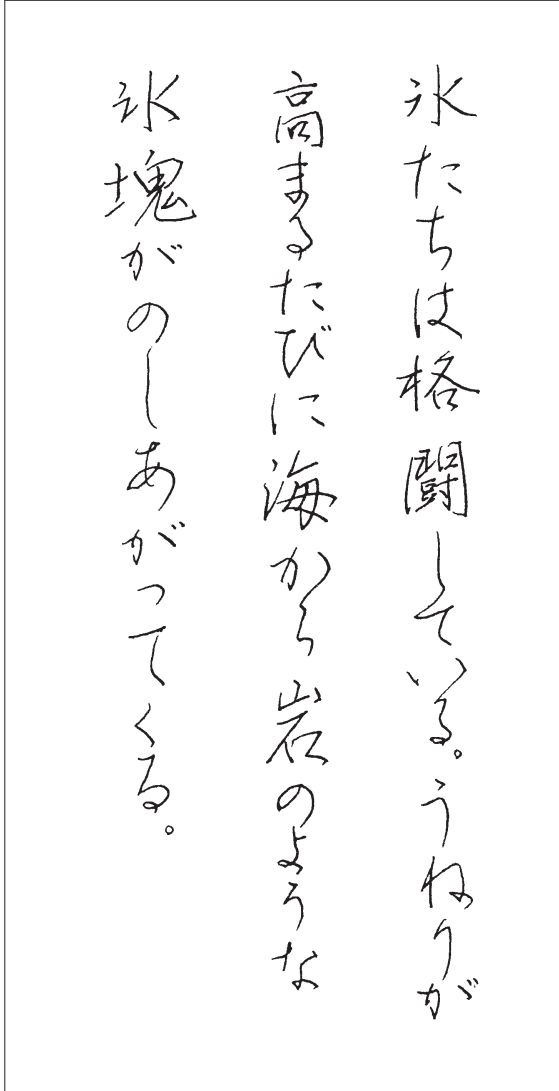 氷たちは格闘している。うねりが
高まるたびに海から岩のような
氷塊がのしあがってくる。